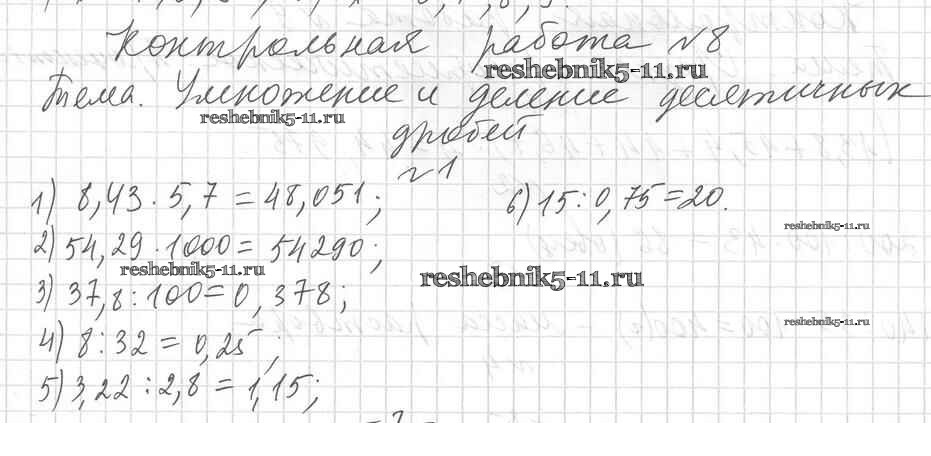 Контрольная работа №8
reshebnik5-11.ru
Тема. Умножение и деление десятичных
reshebnik5-11.ru
дробей
№1
1) 8,43 · 5,7 = 48,051;
6) 15 : 0,75 = 20.
reshebnik5-11.ru
2) 54,29 · 1000 = 54290;
reshebnik5-11.ru
reshebnik5-11.ru
3) 37,8 : 100 = 0,378;
reshebnik5-11.ru
4) 8 : 32 = 0,25;
5) 3,22 : 2,8 = 1,15;